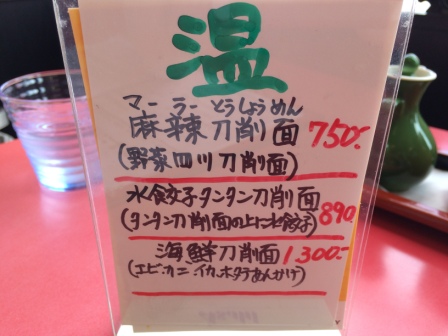 温
マーラーとうしょうめん
麻辣刀削面 750.-
(野菜四川刀削面)
水餃子タンタン刀削面
(タンタン刀削面の上に水餃子) 890
海鮮刀削面 1300.-
(エビ.カニ イカ.ホタテあんかけ)